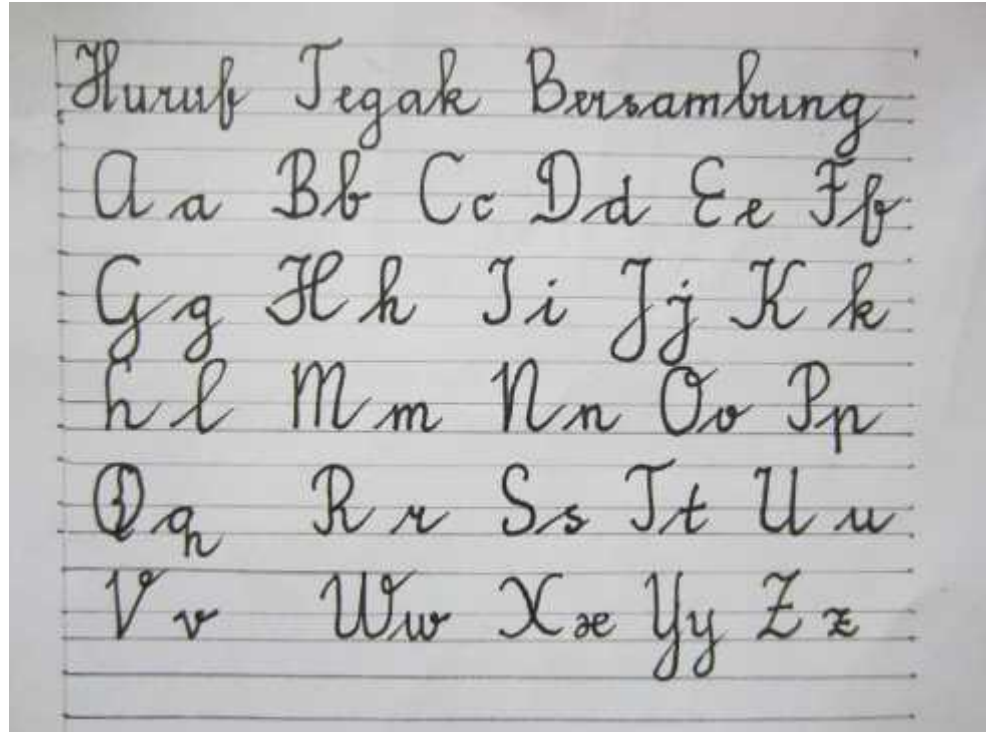 Huruf Tegak Bersambung
A a Bb Cc Dd Ee Ff
Gg Hh Ii Jj Kk
L l Mm Nn Oo Pp
Qq Rr Ss Tt Uu
Vv Ww Xx Yy Zz